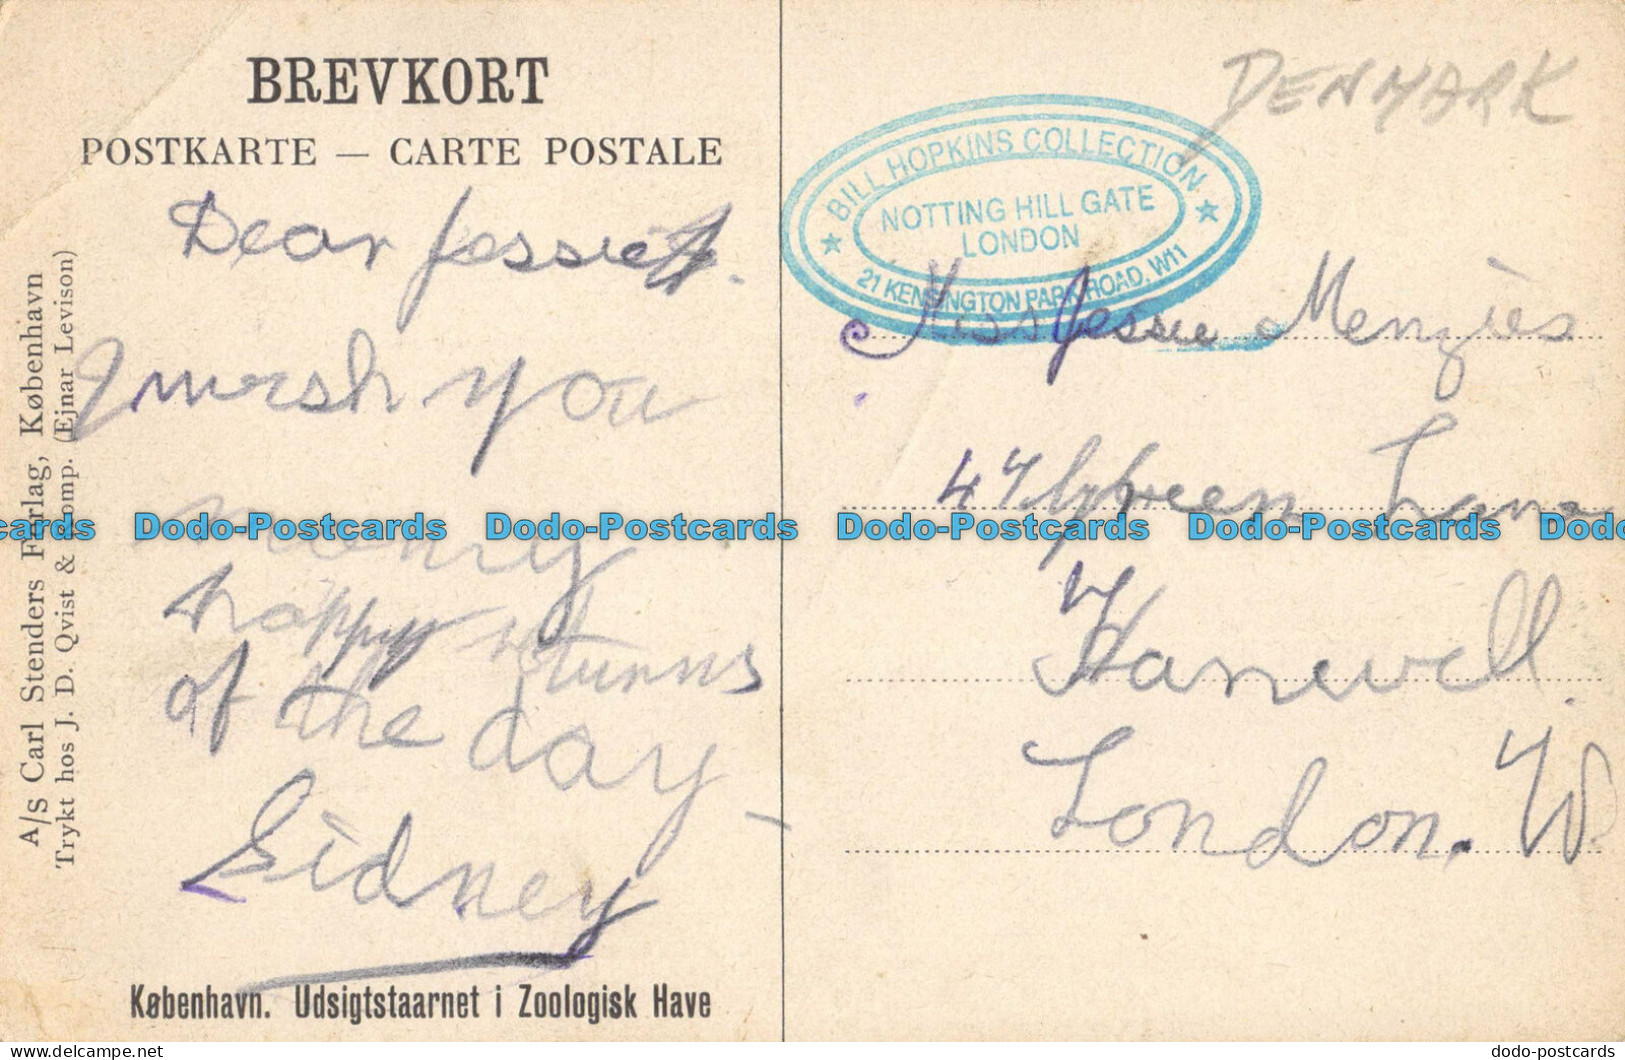 BREVKORT
POSTKARTE — CARTE POSTALE
Dear Jessie
I wish you
many
happy returns
of the day
Sidney
København. Udsigtstaarnet i Zoologisk Have
A/S Carl Stenders Forlag, København
Trykt hos J. D. Qvist & Komp. (Ejnar Levison)
DENMARK
BILL HOPKINS COLLECTION
NOTTING HILL GATE
LONDON
21 KENSINGTON PARK ROAD, W11
Miss Jessie Menzies
47 Green Lane
Hanwell.
London. W.
cards Dodo-Postcards Dodo-Postcards Dodo-Postcards Dodo-Postcards Dodo
delcampe.net
dodo-postcards